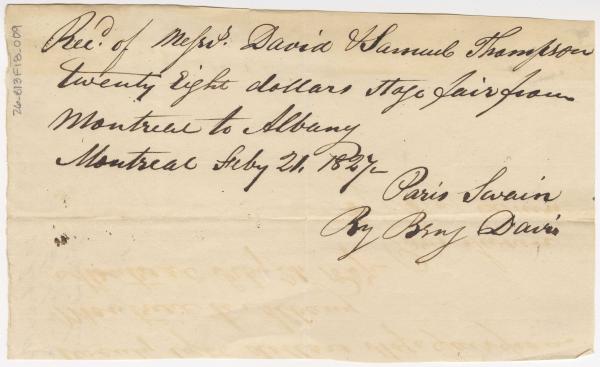 Rec.d of Messrs. David & Samuel Thompson
twenty Eight dollars Stage fair from
Montreal to Albany
Montreal Feby 21. 1827-
Paris Swain
By Benj Davis